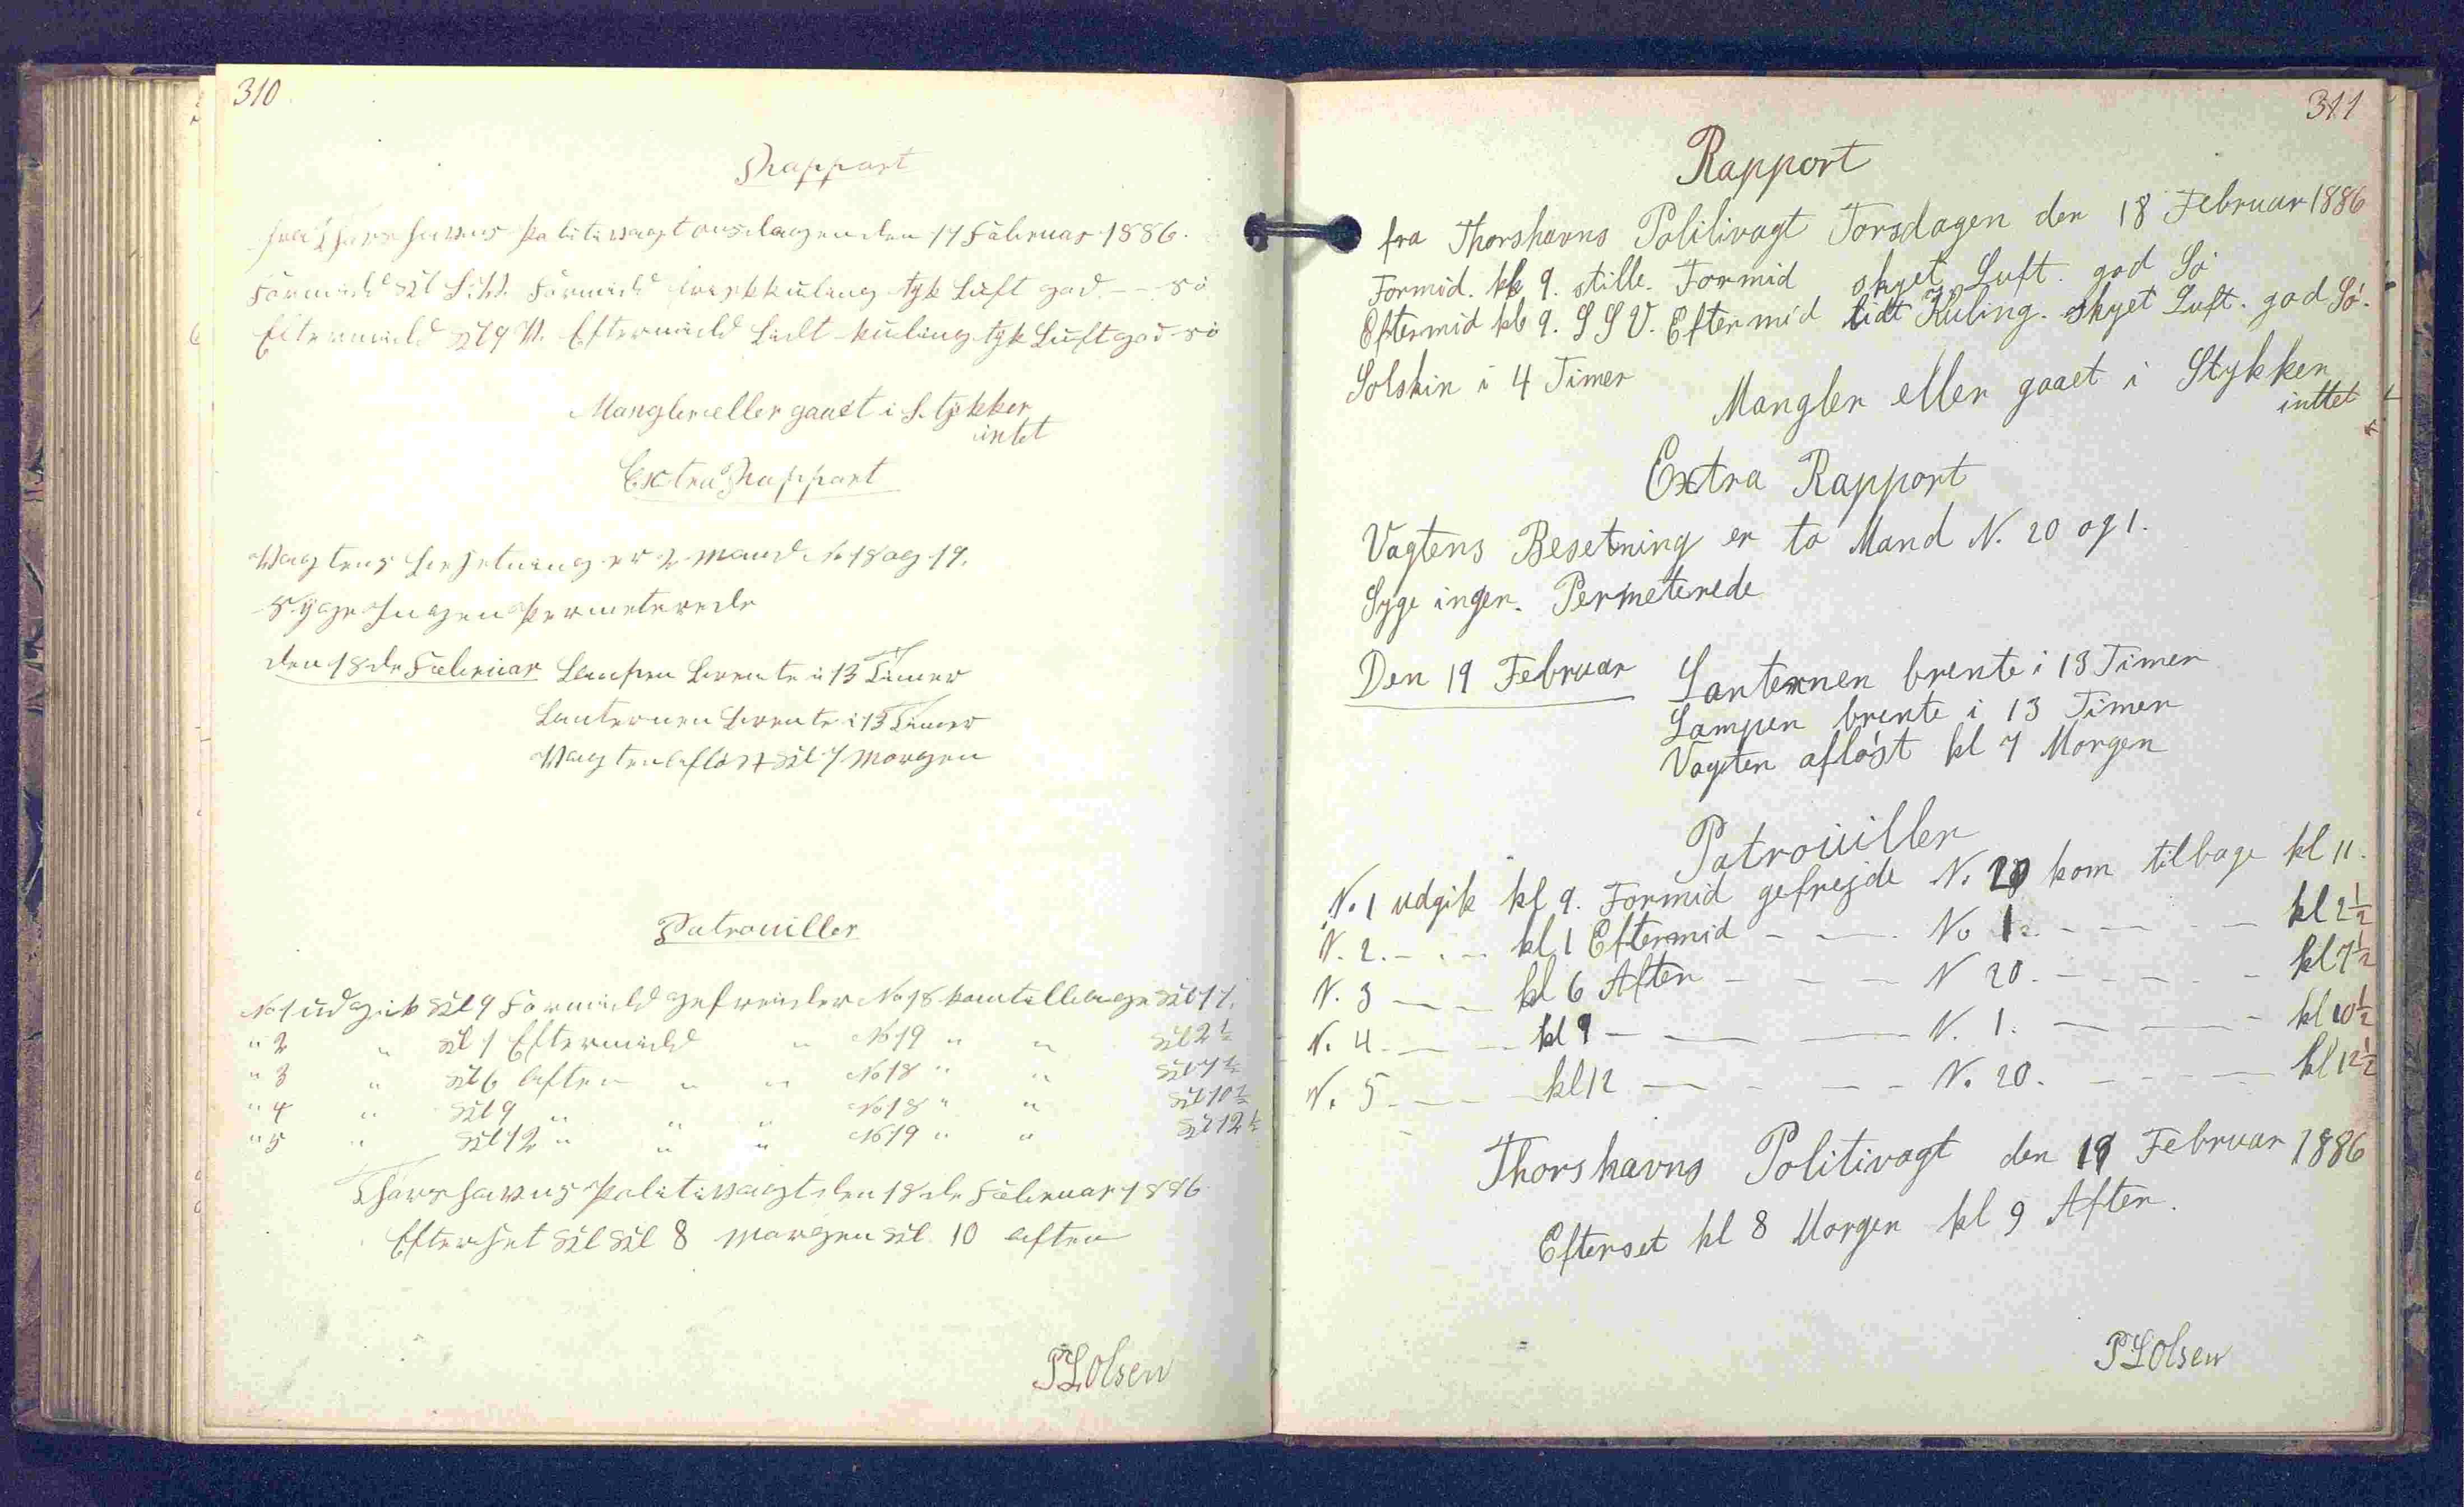 310
Rapport
fra Thorshavns Politivagt onsdagen den 17 Februar 1886.
Formidd Kl S.V. Formidd frisk kuling tyk Luft god - - sö
Eftermidd Kl 9 V. Eftermidd Lidt kuling tyk Luft god sö
Mangler eller gaaet i Stykker
intet
Extra Rapport
Vagtens besetning er 2 mand No 18 og 19.
Syge Ingen Permeterede
den 18de Februar Lampen brente i 13 Timer
Lanternen brente i 13 Timer
Vagten afløst Kl 7 Morgen
Patrouiller
No 1 udgik Kl 9 Formidd gefreider No 18 kom tilbage Kl 11.
" 2 " Kl 1 Eftermidd " No 19 " " Kl 2½
" 3 " Kl 6 Aften " " No 18 " " Kl 7½
" 4 " Kl 9 " " " No 18 " " Kl 10½
" 5 " Kl 12 " " " No 19 " " Kl 12½
Thorshavns Politivagt den 18de Februar 1886
Efterset Kl Kl 8 Morgen Kl. 10 aften
P L Olsen
311
Rapport
fra Thorshavns Politivagt Torsdagen den 18 Februar 1886
Formid. kl 9. stille. Formid skyet Luft. god Sø
Eftermid kl 9. S S V. Eftermid lidt Kuling. skyet Luft. god Sø.
Solskin i 4 Timer
Mangler eller gaaet i Stykker
inttet
Extra Rapport
Vagtens Besetning er to Mand N. 20 og 1.
Syge ingen. Permeterede
Den 19 Februar Lanternen brente i 13 Timer
Lampen brente i 13 Timer
Vagten afløst kl 7 Morgen
Patrouiller
N. 1 udgik kl 9. Formid gefrejde N. 20 kom tilbage kl 11.
N. 2. - - - kl 1 Eftermid - - - No 1. - - - - kl 2½
N. 3 - - kl 6 Aften - - - N 20. - - - kl 7½
N. 4 - - kl 9 - - - N. 1. - - - kl 10½
N. 5 - - kl 12 - - - - N. 20. - - - kl 12½
Thorshavns Politivagt den 19 Februar 1886
Efterset kl 8 Morgen kl 9 Aften.
P L Olsen